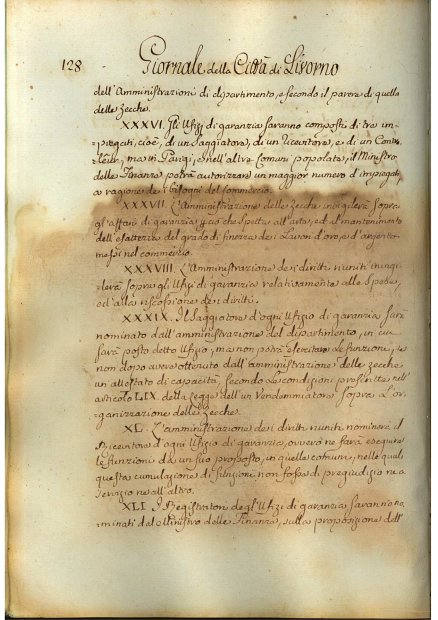 128 Giornale della Città di Livorno
dell'Amministrazioni di dipartimento, e secondo il parere di quella
delle Zecche.
XXXVI. Gli Ufizi di garanzia saranno composti di tre im-
piegati, cioè, di un Saggiatore, di un Ricevitore, e di un Con-
, ma in Parigi, e nell'altre Comuni popolate, il Ministro
delle Finanze potrà autorizzare un maggior numero d'impiegati,
a ragione dei bisogni del commercio.
XXXVII. L'Amministrazione delle Zecche invigilerà sopra
gl'affari di garanzia, in ciò che spetta all'arte, ed al mantenimento
dell'esattezza del grado di finezza dei Lavori d'oro, e d'argento
messi nel commercio.
XXXVIII. L'Amministrazione dei diritti riuniti invigi-
lerà sopra gli Ufizi di garanzia relativamente alle Spese,
ed alla riscossione dei diritti.
XXXIX. Il Saggiatore d'ogni Ufizio di garanzia sarà
nominato dall'amministrazione del dipartimento, in cui
sarà posto detto Ufizio, ma non potrà esercitare le funzioni, se
non dopo avere ottenuto dall'amministrazione delle Zecche
un attestato di capacità, secondo le condizioni prescritte nell'
articolo LIX. della Legge dell' un Vendemmiatore sopra l'or-
ganizzazione delle Zecche.
XL. L'amministrazione dei diritti riuniti nominerà il
Ricevitore d'ogni Ufizio di garanzia, ovvero ne farà eseguire
le funzioni da un suo proposto, in quelle comuni, nelle quali
questa cumulazione di funzioni non fosse di pregiudizio ne a
servizio ne all'altro.
XLI. I Registratori degl'Ufizi di garanzia saranno no-
minati dal Ministro delle Finanze, sulla proposizione dell'